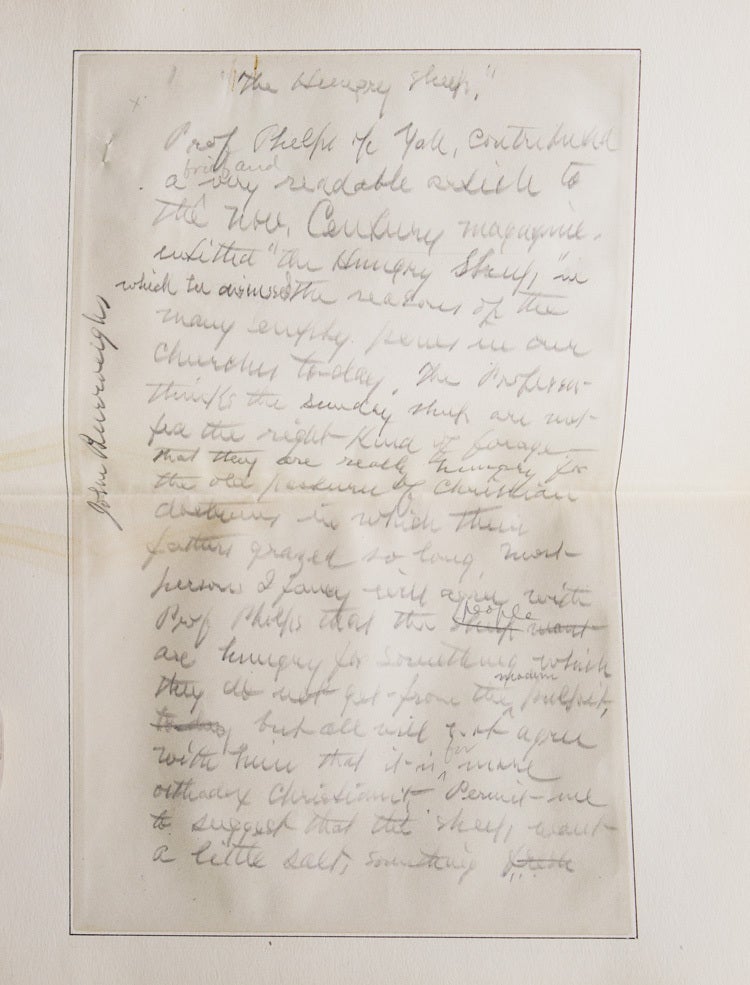 "The Hungry Sheep,"
Prof Phelps of Yale, contributed
bright and
a very readable article to
the Nov. Century magazine.
entitled "the Hungry Sheep," in
which he discussed the reasons of the
many empty pews in our
churches to-day. The Professor
thinks the Sunday sheep are not
fed the right kind of forage—
that they are really hungry for
the old pastures of Christian
doctrines in which their
fathers grazed so long. Most
persons I fancy will agree with
people
Prof Phelps that the sheep want
are hungry for something which
modern
they do not get from the pulpit,
to-day but all will not agree
for
with him that it is more
orthodox Christianity. Permit me
to suggest that the sheep, want
a little salt, something fresh
John Burroughs